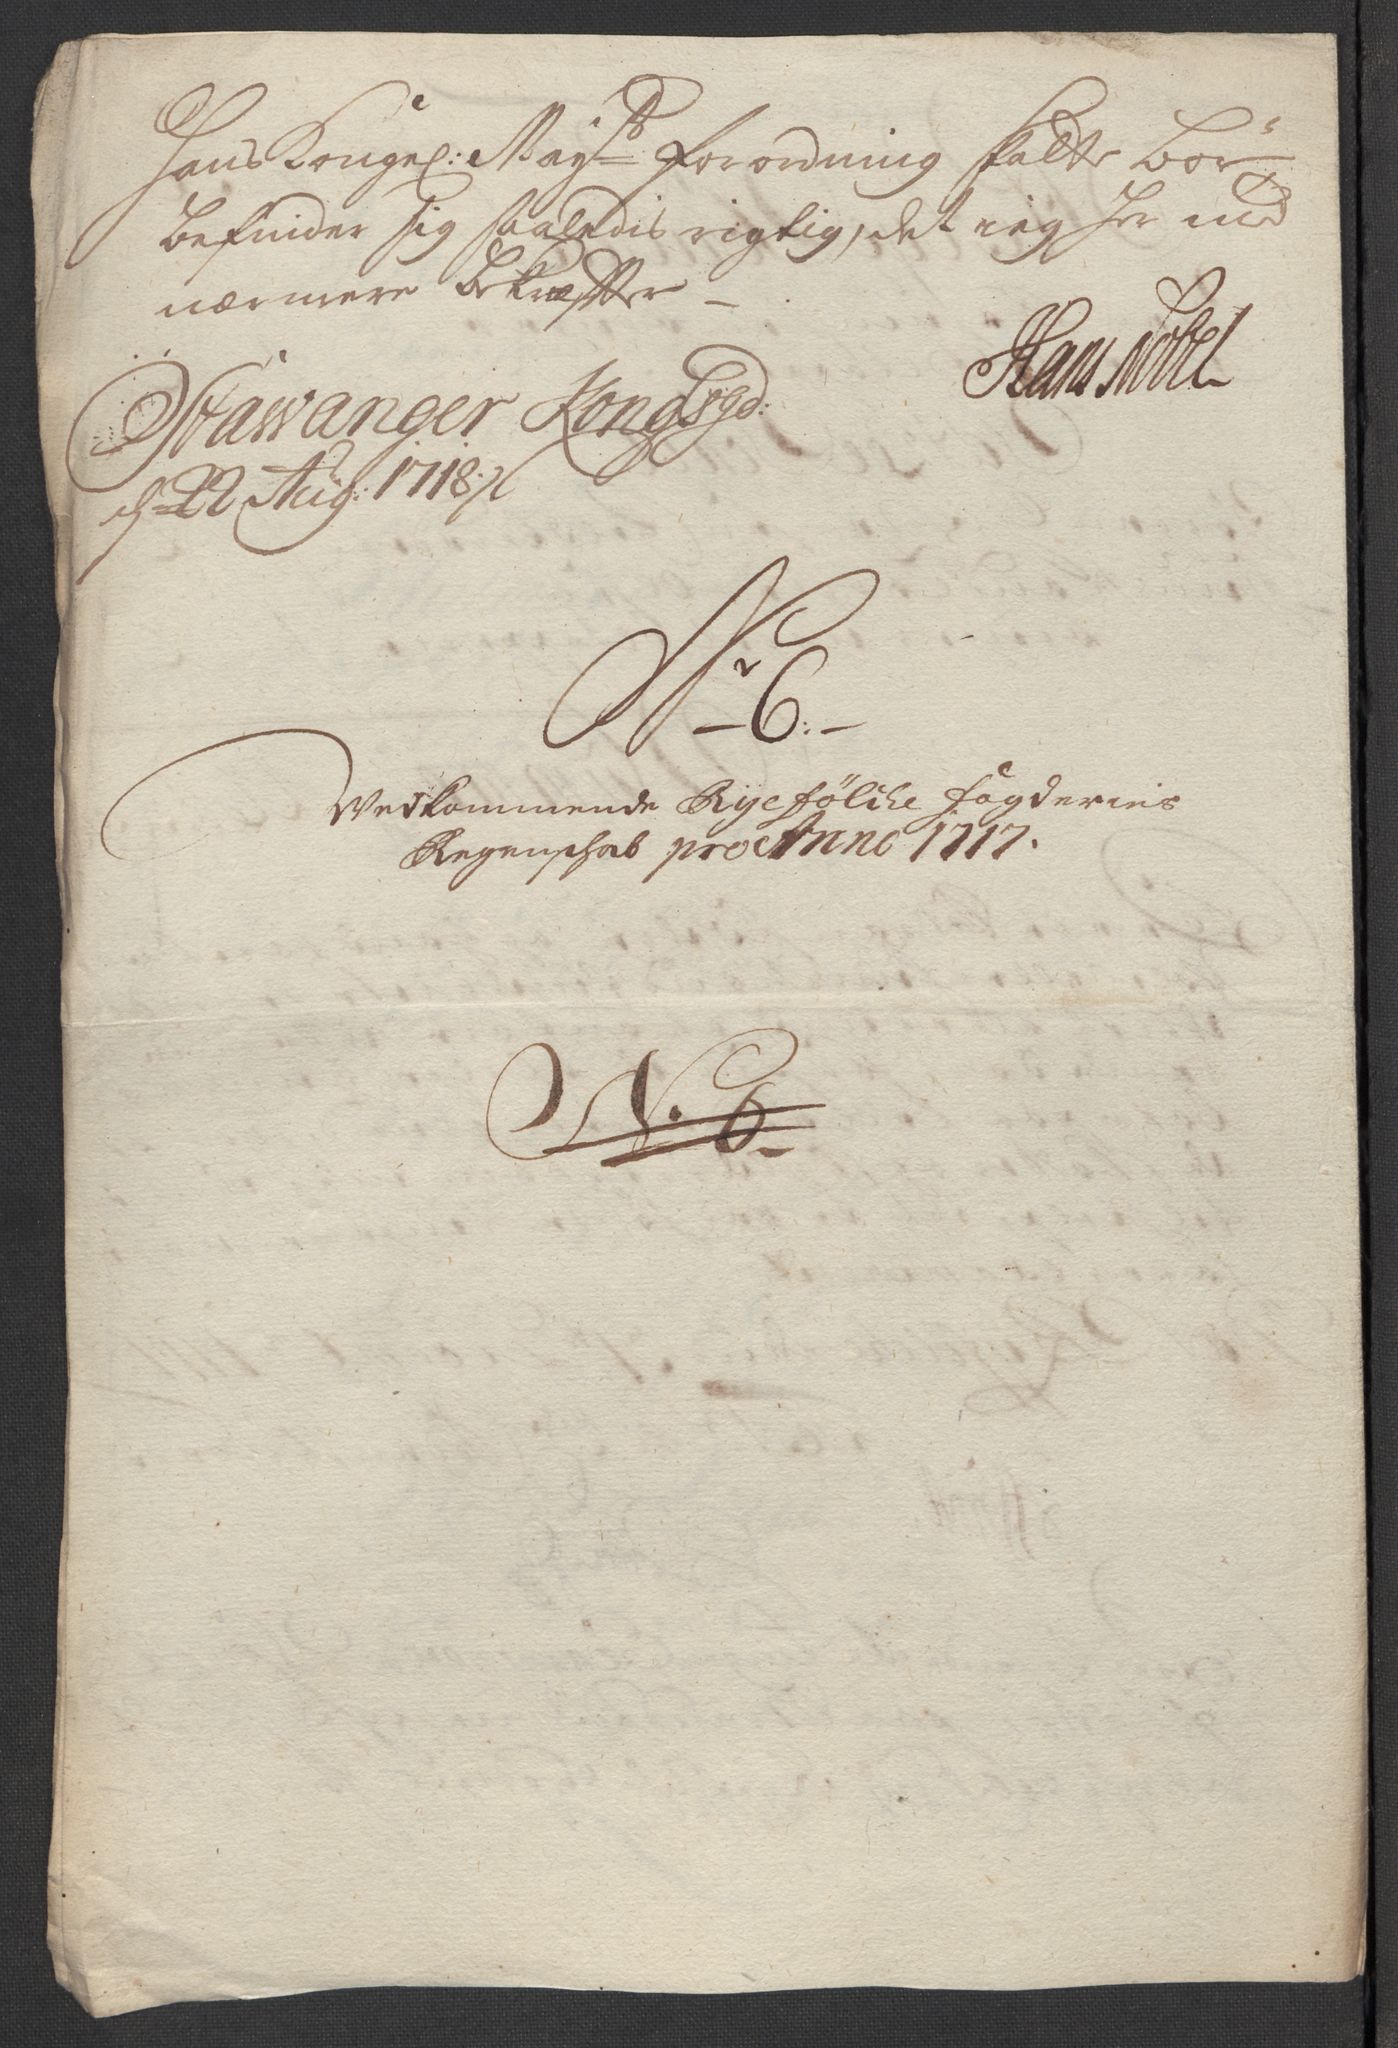 Hans Kongel: May:ts forordning falde bör
befinder sig saaledis rigtig, det ieg her med
nærmere bekræffter –
Hans Nobel
Stawanger Kongsgd:
d. 22 Aug: 1718
Nr 6:
Vedkommende Ryefölche fogderies
Regenschab pro Anno 1717.
N. 6